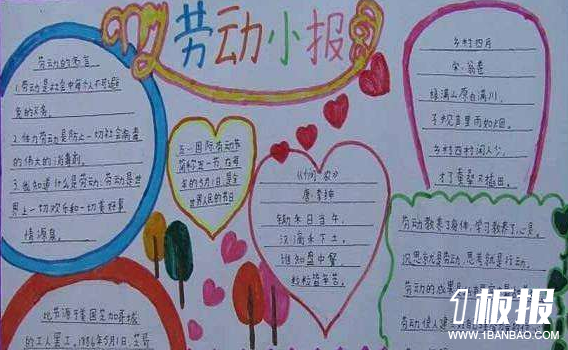 劳动小报
劳动的名言
1.劳动是社会中每个人不可避
免的义务。
2.体力劳动是防止一切社会病毒
的伟大的消毒剂。
3.我知道什么是劳动:劳动是世
界上一切欢乐和一切美好事
情源泉。
五一国际劳动节
简称五一节,在每
年的5月1日是全
世界人民的节日
《悯农》
唐·李绅
锄禾日当午,
汗滴禾下土。
谁知盘中餐
粒粒皆辛苦。
乡村四月
宋·翁卷
绿满山原白满川,
子规声里雨如烟。
乡村四月闲人少,
才了蚕桑又插田。
劳动教养了身体,学习教养了心灵。
沉思就是劳动,思考就是行动。
劳动的成果是
劳动使人建
此节源于美国芝加哥城
的工人罢工。1886年5月1日,芝哥
1板报
WWW.1BANBAO.COM